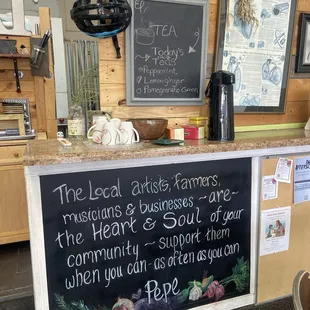 TEA
Today's
Teas
Peppermint
Lemon ginger
Pomegranate Green
The Local artists, farmers,
musicians & businesses ~ are ~
the Heart & Soul of your
community ~ support them
when you can - as often as you can
Pepe